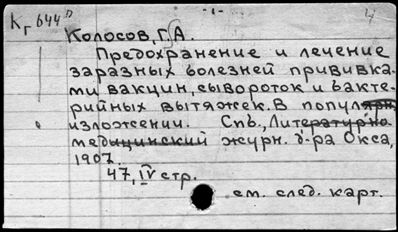 Кг 644"
- 1 -
Колосов, Г. А.
Предохранение и лечение
заразных болезней прививка-
ми вакцин, сывороток и бакте-
рийных вытяжек. В популярн.
изложении. Спб., Литературно
медицинский журн. д-ра Окса,
1907.
47, IV стр.
см. след. карт.